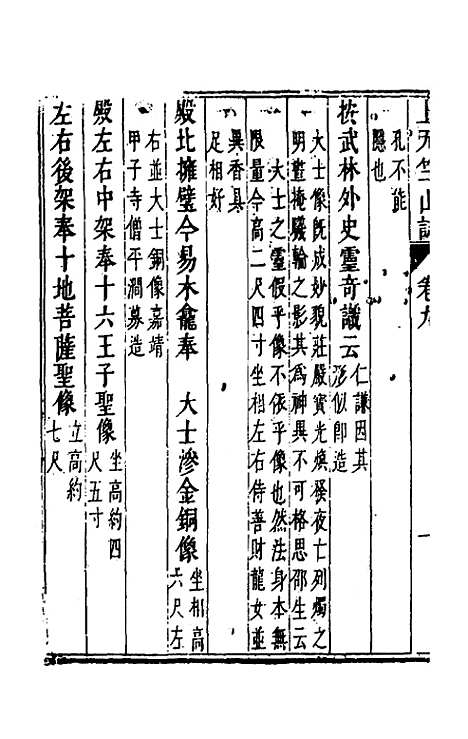 上天竺山誌 卷九 一
孔不能
隱也
按武林外史靈奇議云仁謙因其
形似卽造
大士像旣成妙貌莊嚴寶光煥發夜亡列燭之
明蓋掩驪輪之影其爲神異不可格思邵生云
大士之靈假乎像不依乎像也然法身本無
限量今高二尺四寸坐相左右侍善財龍女並
異香具
足相好
殿北擁壁今易木龕奉 大士滲金銅像坐相高
六尺左
右並大士銅像嘉靖
甲子寺僧平澗募造
殿左右中架奉十六王子聖像坐高約四
尺五寸
左右後架奉十地菩薩聖像立高約
七尺